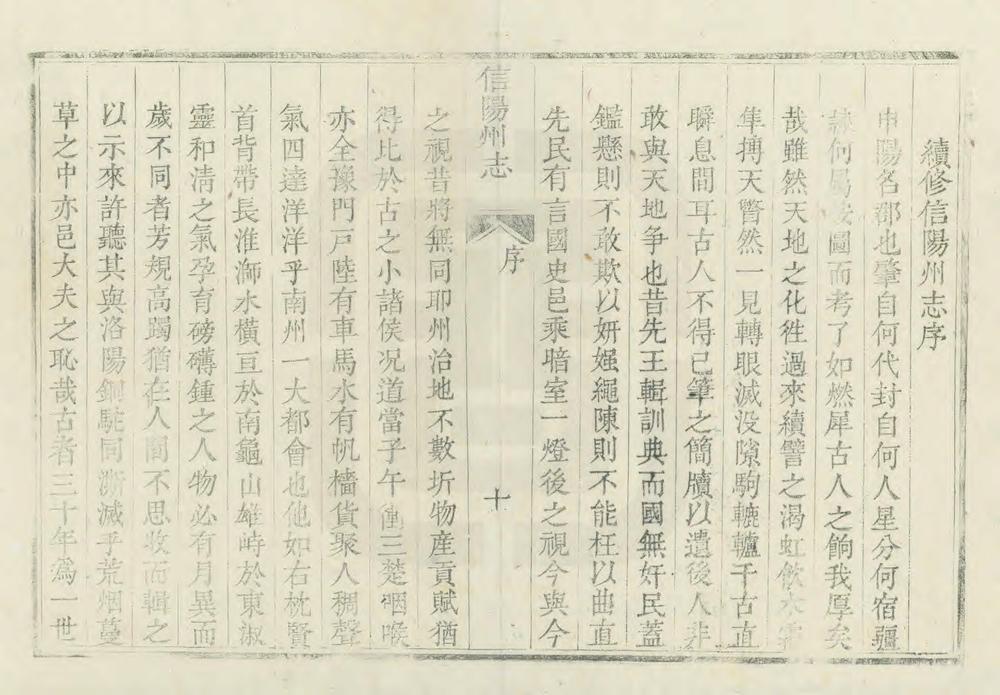 續修信陽州志序
申陽名郡也肇自何代封自何人星分何宿疆
隸何局按圖而考了如燃犀古人之餉我厚矣
哉雖然天地之化徃過來續譬之渴虹飲水霜
隼搏天瞥然一見轉眼滅没隙駒轆轤千古直
瞬息間耳古人不得已筆之簡牘以遺後人非
敢與天地争也昔先王輯訓典而國無奸民蓋
鑑懸則不敢欺以妍媸繩陳則不能枉以曲直
先民有言國史邑乘暗室一燈後之視今與今
信陽州志
序
十
之視昔將無同耶州治地不數圻物産貢賦猶
得比於古之小諸侯况道當子午衝三楚咽喉
亦全豫門戸陸有車馬水有帆檣貨聚人稠聲
氣四達洋洋乎南州一大都會也他如右枕賢
首背帶長淮溮水橫亘於南龜山雄峙於東淑
靈和淸之氣孕育磅礴鍾之人物必有月異而
歲不同者芳規高躅猶在人間不思收而輯之
以示來許聽其與洛陽銅駝同澌滅乎荒烟蔓
草之中亦邑大夫之恥哉古者三十年爲一世